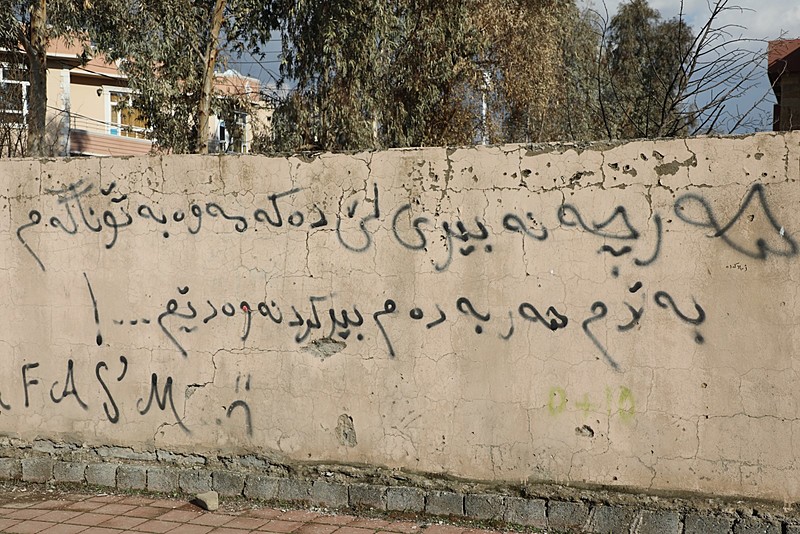 هەرچەنە بیری لێ دەکەمەوە بە تۆ ناگەم
بەڵام هەر بەدەم بیرکردنەوە دێم ....!
FAS'M